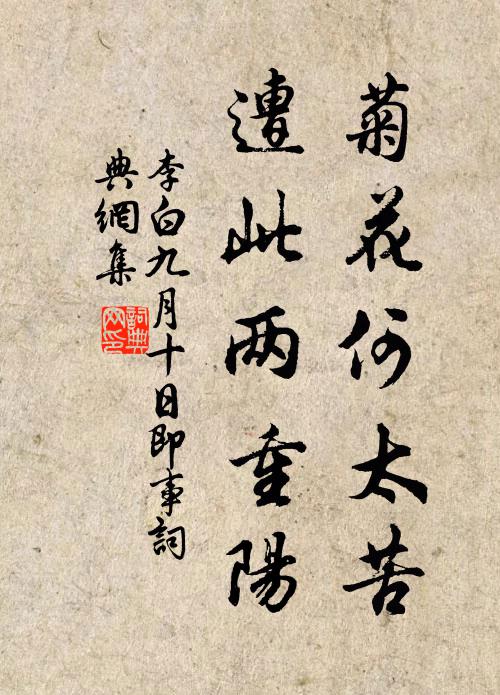 菊花何太苦
遭此两重陽
李白九月十日即事詞
典網集
詞典网印